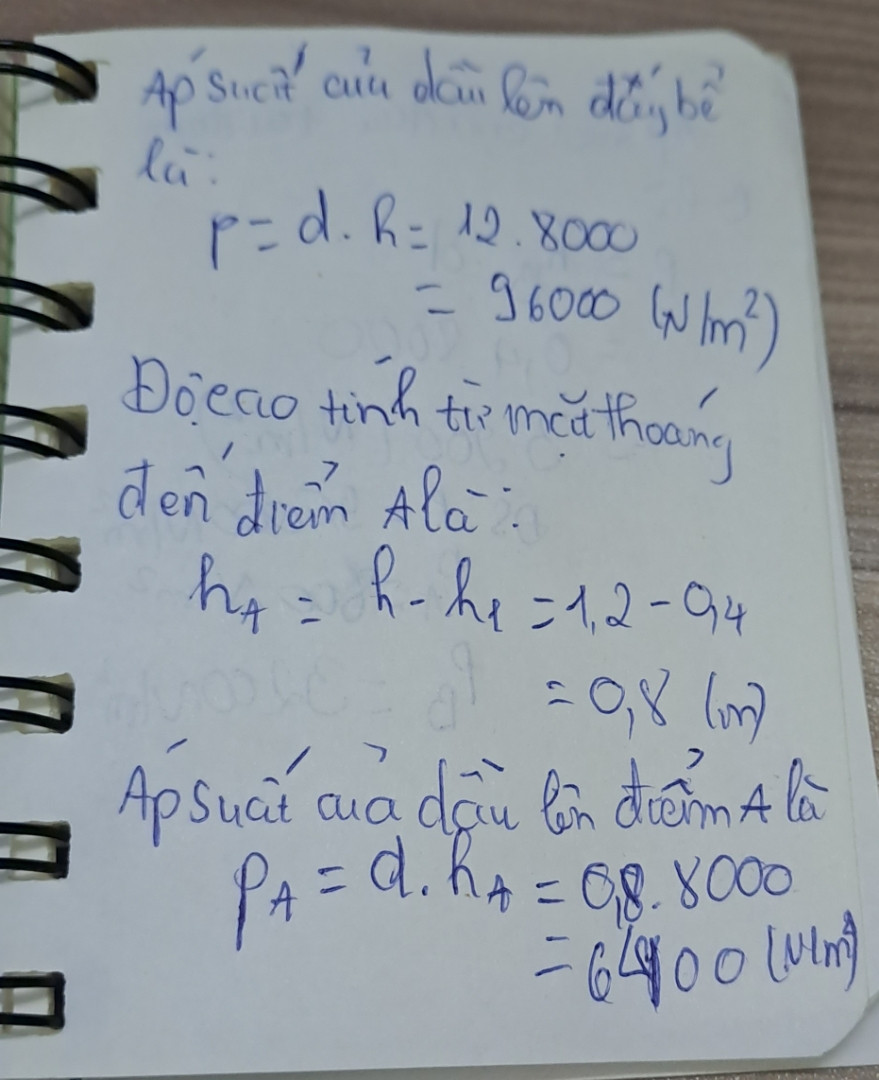 Áp suất của dầu lên đáy bể
là:
p = d . h = 12 . 8000
= 96000 (N/m²)
Độ cao tính từ mặt thoáng
đến điểm A là:
h_A = h - h_1 = 1,2 - 0,4
= 0,8 (m)
Áp suất của dầu lên điểm A là
p_A = d . h_A = 0,8 . 8000
= 6400 (N/m²)